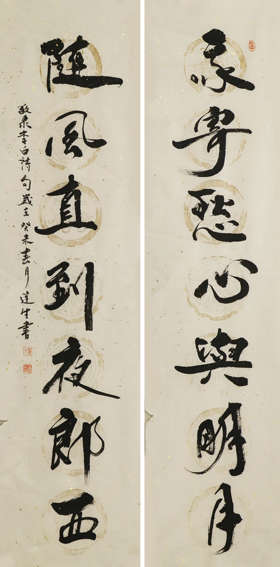 我寄愁心與明月
隨風直到夜郎西
录李白詩句歲癸未春月書